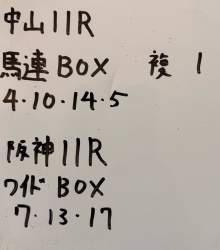 中山11R
馬連BOX 複1
4·10·14·5
阪神11R
ワイドBOX
7·13·17